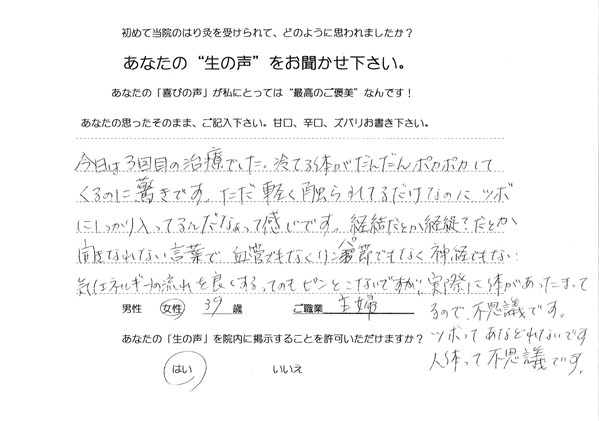 初めて当院のはり灸を受けられて、どのように思われましたか？
あなたの“生の声”をお聞かせ下さい。
あなたの「喜びの声」が私にとっては“最高のご褒美”なんです！
あなたの思ったそのまま、ご記入下さい。甘口、辛口、ズバリお書き下さい。
今日は3回目の治療でした。冷てる体がだんだんポカポカして
くるのに驚きです。ただ軽く触られてるだけなのにツボ
にしっかり入ってるんだなぁって感じです。経絡だとか経縦?だとか
聞きなれない言葉で、血管でもなくリンパ節でもなく神経でもない
気はネルギーの流れを良くするってのもピンとこないですが、実際に体があったまって
男性 女性 39 歳 ご職業 主婦
るので、不思議です。
あなたの「生の声」を院内に掲示することを許可いただけますか？
ツボってあなどれないです
はい いいえ
人体って不思議です。